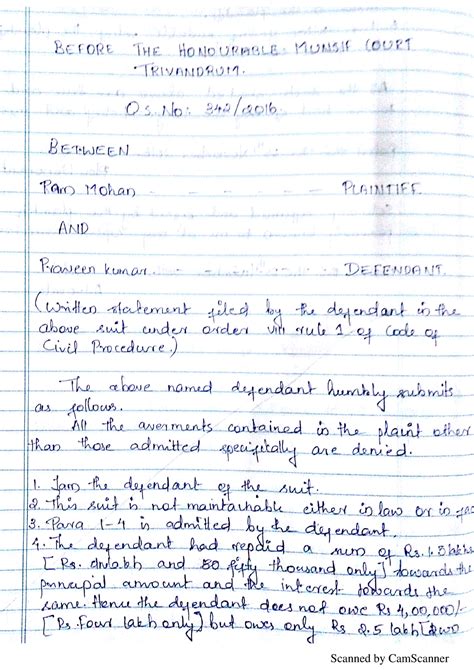 BEFORE THE HONOURABLE MUNSIF COURT
TRIVANDRUM.
O.S. No: 342/2016
BETWEEN
Ram Mohan - - - - - PLAINTIFF
AND
Praveen Kumar - - - - DEFENDANT
(Written statement filed by the defendant in the
above suit under order VIII rule 1 of Code of
Civil Procedure.)
The above named defendant humbly submits
as follows.
All the averments contained in the plaint other
than those admitted specifically are denied.
1. I am the defendant of the suit.
2. This suit is not maintainable either in law or in
3. Para 1-4 is admitted by the defendant.
4. The defendant had repaid a sum of Rs. 1.5 lakhs
[Rs. lakh and 50 fifty thousand only] towards the
principal amount and the interest towards the
same. Hence the defendant does not owe Rs 4,00,000/-
[Rs. Four lakh only] but owes only Rs 2.5 lakh [two
Scanned by CamScanner